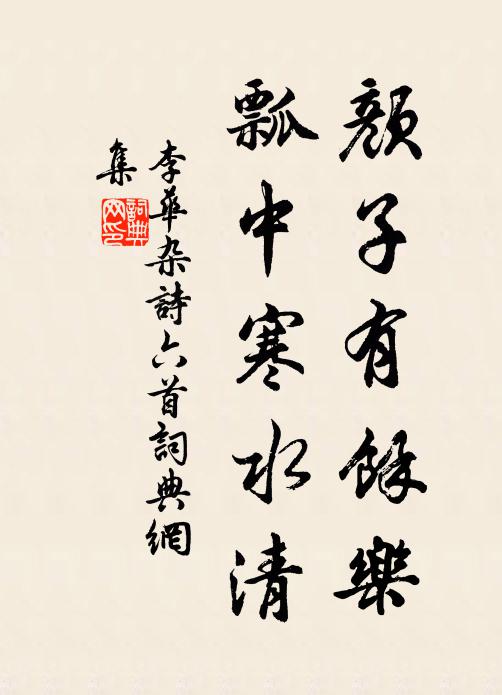 顔子有餘樂
瓢中寒水清
李華杂詩六首詞典網
集
詞典
网印